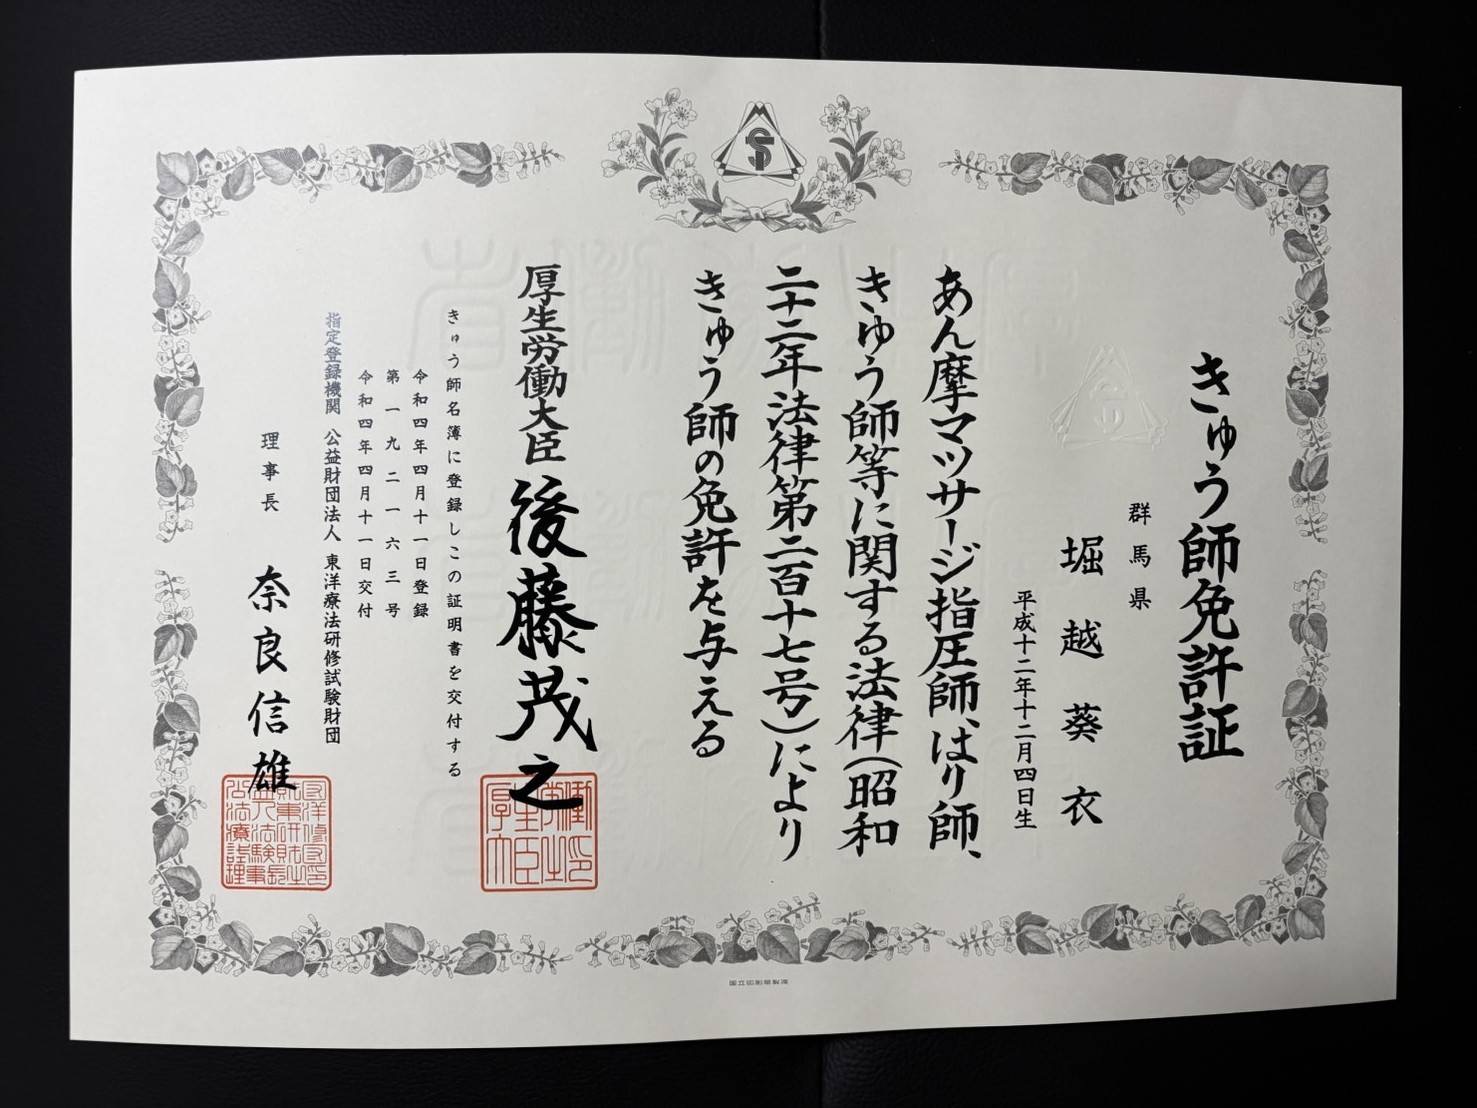 きゅう師免許証
群馬県
堀越葵衣
平成十二年十二月四日生
あん摩マツサージ指圧師、はり師、
きゆう師等に関する法律(昭和
二十二年法律第二百十七号)により
きゅう師の免許を与える
厚生労働大臣 後藤茂之
きゅう師名簿に登録しこの証明書を交付する
令和四年四月十一日登録
第一九二一六三号
令和四年四月十一日交付
指定登録機関 公益財団法人 東洋療法研修試験財団
理事長 奈良信雄
国立印刷局製造